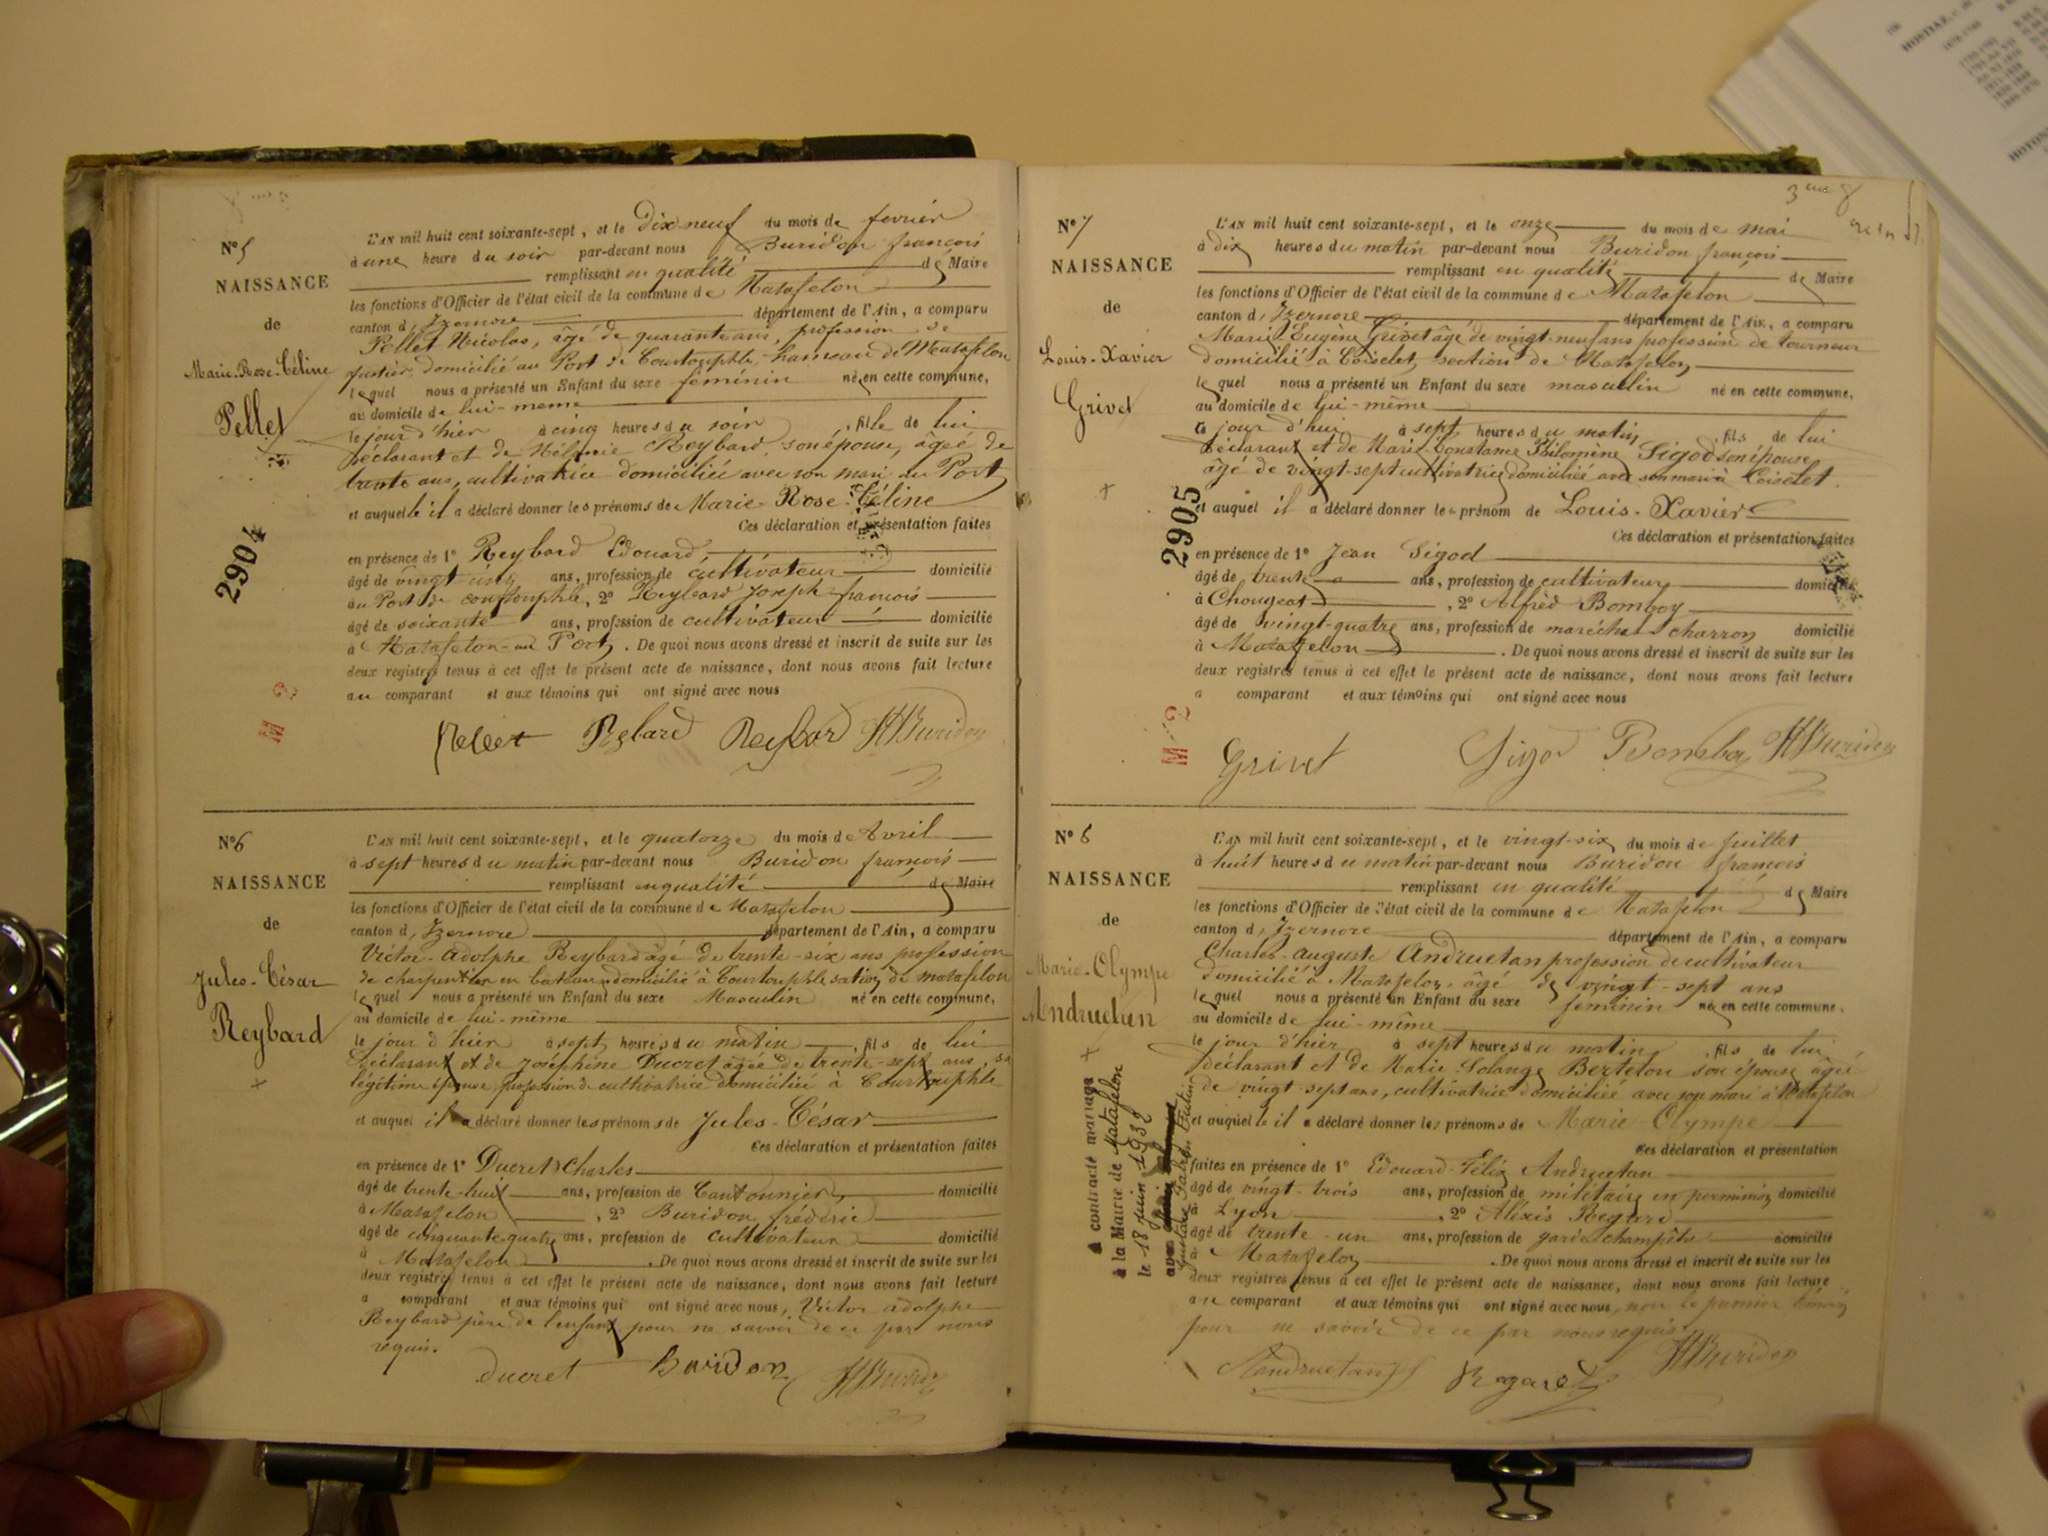 N° 5
NAISSANCE
de
Marie-Rose-Céline
Pellet
2904
M 2
L'AN mil huit cent soixante-sept, et le dix neuf du mois de fevrier
à une heure du soir par-devant nous Buridon françois
remplissant en qualité de Maire
les fonctions d'Officier de l'état civil de la commune de Matafelon
canton d'Izernore département de l'Ain, a comparu
Pellet Nicolas, âgé de quarante ans, profession de
domicilié au Port de Courtouphle, hameau de Matafelon
lequel nous a présenté un Enfant du sexe féminin né en cette commune,
au domicile de lui-meme
le jour d'hier à cinq heures du soir, fille de lui
déclarant et de Mélanie Reybard, son épouse, âgée de
trente ans, cultivatrice domiciliée avec son mari au Port
et auquelle il a déclaré donner les prénoms de Marie-Rose-Céline
Ces déclaration et présentation faites
en présence de 1° Reybard Edouard
âgé de vingt cinq ans, profession de cultivateur domicilié
au Port de courtouphle, 2° Reybard Joseph françois
âgé de soixante ans, profession de cultivateur domicilié
à Matafelon au Port. De quoi nous avons dressé et inscrit de suite sur les
deux registres tenus à cet effet le présent acte de naissance, dont nous avons fait lecture
au comparant et aux témoins qui ont signé avec nous
Pellet Reybard HBuridon
N° 6
NAISSANCE
de
Jules-César
Reybard
L'AN mil huit cent soixante-sept, et le quatorze du mois de Avril
à sept heures du matin par-devant nous Buridon françois
remplissant en qualité de Maire
les fonctions d'Officier de l'état civil de la commune de Matafelon
canton d'Izernore département de l'Ain, a comparu
Victor-Adolphe Reybard âgé de trente-six ans profession
de charpentier en bateaux domicilié à Courtouphle section de matafelon
lequel nous a présenté un Enfant du sexe Masculin né en cette commune,
au domicile de lui-même
le jour d'hier à sept heures du matin, fils de lui
déclarant et de Joséphine Ducret âgée de trente-sept ans, sa
légitime épouse, profession de cultivatrice domiciliée à Courtouphle
et auquel il a déclaré donner les prénoms de Jules-César
Ces déclaration et présentation faites
en présence de 1° Ducret Charles
âgé de trente-huit ans, profession de Cantonnier domicilié
à Matafelon, 2° Buridon fréderic
âgé de cinquante quatre ans, profession de cultivateur domicilié
à Matafelon. De quoi nous avons dressé et inscrit de suite sur les
deux registres tenus à cet effet le présent acte de naissance, dont nous avons fait lecture
a comparant et aux témoins qui ont signé avec nous, Victor adolphe
Reybard père de l'enfant pour ne savoir de ce par nous
requis.
Ducret Buridon HBuridon
3eme
N° 7
NAISSANCE
de
Louis-Xavier
Grivet
2905
M 2
L'AN mil huit cent soixante-sept, et le onze du mois de mai
à dix heures du matin par-devant nous Buridon françois
remplissant en qualité de Maire
les fonctions d'Officier de l'état civil de la commune de Matafelon
canton d'Izernore département de l'Ain, a comparu
Marie Eugène Grivet âgé de vingt-neuf ans profession de tourneur
domicilié à Coiselet section de Matafelon
lequel nous a présenté un Enfant du sexe masculin né en cette commune,
au domicile de lui-même
ce jour d'hui à sept heures du matin, fils de lui
déclarant et de Marie Constance Philomène Sigod son épouse
âgé de vingt-sept cultivatrice domiciliée avec son mari à Coiselet.
et auquel il a déclaré donner le prénom de Louis-Xavier
Ces déclaration et présentation faites
en présence de 1° Jean Sigod
âgé de trente ans, profession de cultivateur domicilié
à Chougeat, 2° Alfred Bomboy
âgé de vingt-quatre ans, profession de maréchal charron domicilié
à Matafelon. De quoi nous avons dressé et inscrit de suite sur les
deux registres tenus à cet effet le présent acte de naissance, dont nous avons fait lecture
a comparant et aux témoins qui ont signé avec nous
Grivet Sigod Bomboy HBuridon
N° 8
NAISSANCE
de
Marie-Olympe
Andruetan
A contracté mariage
à la Mairie de Matafelon
le 18 juin 1932
avec
L'AN mil huit cent soixante-sept, et le vingt-six du mois de juillet
à huit heures du matin par-devant nous Buridon françois
remplissant en qualité de Maire
les fonctions d'Officier de l'état civil de la commune de Matafelon
canton d'Izernore département de l'Ain, a comparu
Charles-Auguste Andruetan profession de cultivateur
domicilié à Matafelon, âgé de vingt-sept ans
lequel nous a présenté un Enfant du sexe feminin né en cette commune.
au domicile de lui-même
le jour d'hier à sept heures du matin, fils de lui
déclarant et de Marie-Solange Bertelon son épouse âgée
de vingt-sept ans, cultivatrice domiciliée avec son mari à Matafelon
et auquelle il a déclaré donner les prénoms de Marie-Olympe
Ces déclaration et présentation
faites en présence de 1° Edouard-Félix Andruetan
âgé de vingt-trois ans, profession de militaire en permission domicilié
à Lyon, 2° Alexis Regard
âgé de trente-un ans, profession de garde champêtre domicilié
à Matafelon. De quoi nous avons dressé et inscrit de suite sur les
deux registres tenus à cet effet le présent acte de naissance, dont nous avons fait lecture
au comparant et aux témoins qui ont signé avec nous, non le premier témoin
pour ne savoir de ce par nous requis.
Andruetan Regard HBuridon